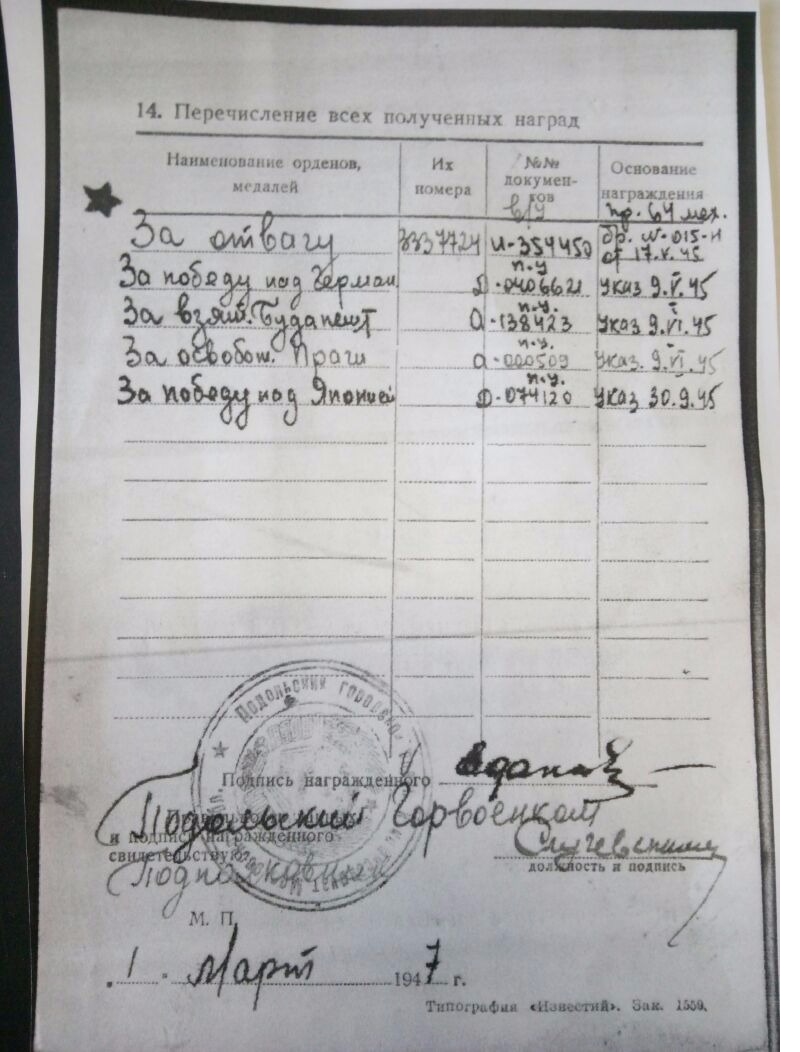 14. Перечисление всех полученных наград
Наименование орденов, медалей
Их номера
№№ докумен-тов
Основание награждения
За отвагу 3337724 в/у И-354450 пр. 64 мех. бр. №-015-н от 17.V.45
За победу над Герман. п.у Д-0406621 Указ 9.V.45
За взят. Будапешт п.у. А-138423 Указ 9.VI.45
За освобож. Праги п.у. А-000509 Указ. 9.VI.45
За победу над Японией п.у. Д-074120 Указ 30.9.45
Подольский городской
Подпись награжденного
Подольский Горвоенком
и подпись награжденного
свидетельствую:
Подполковник
Случевский
должность и подпись
М. П.
„1“ Март 1947 г.
Типография «Известий». Зак. 1559.